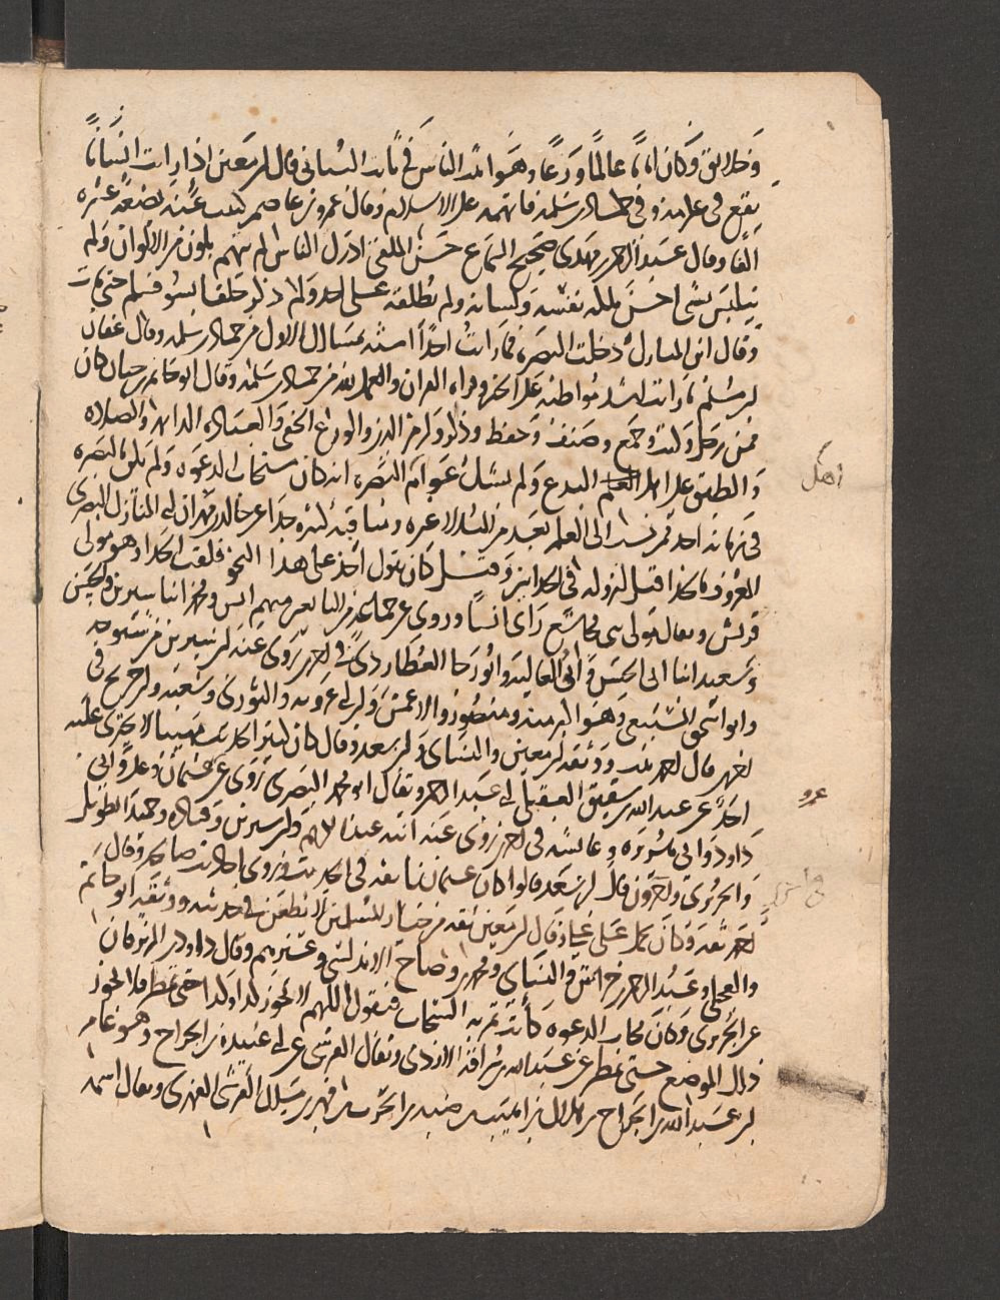 وخلايق وكان اماما عالما ورعا وهو اثبت الناس في ثابت البناني قال ابن معين اذا رايت انسانا
يقع في عكرمة وفي حماد بن سلمة فاتهمه على الاسلام وقال عمرو بن عاصم كتبت عنه بضعة عشره
الفا وقال عبد الرحمن بن مهدي صحيح السماع حسن اللقي ادرك الناس لم يتهم بلون من الالوان ولم
يلتبس بشي احسن ملكة نفسه ولسانه ولم يطلقه على احد ولا ذكر خلقا بسو فسلم حتى مات
وقال ابن المبارك دخلت البصره فما رايت احدا اشبه بمسالك الاول من حماد بن سلمه وقال عفان
بن مسلم ما رايت اشد مواظبة على الخير وقراه القران والعمل لله من حماد بن سلمة وقال ابو حاتم بن حبان كان
ممن رحل وكتب وجمع وصنف وحفظ وذكر ولزم الدين والورع الخفي والعباده الدائمة والصلابه
والطبق على اهل البدع ولم يشك عوام البصره انه كان مستجاب الدعوه ولم يكن بالبصره
اهل
في زمانه احد ممن نسب الى العلم يعد من البدلا غيره ومناقبه كثيره جدا عن خالد بن مهران ابي المنازل البصري
المعروف بالحذا قيل لنزوله في الحذائين وقيل كان يقول احذ على هذا النحو فلقب الحذا وهو مولى
قريش ويقال مولى بني مجاشع راى انسا وروى عن جماعة من التابعين منهم انس ومحمد ابنا سيرين والحسن
وسعيد ابنا ابي الحسن وابي العالية وابو رجا العطاردي في اخرين روى عنه ابن سيرين من شيوخه
وابو اسحق السبيعي وهو اكبر منه ومنصور والاعمش وابن ابي عروبه والثوري وشعبه وابن جريج في
اخرين قال احمد ثبت ووثقه ابن معين والنساي وابن سعد وقال كان كثير الحديث مهيبا لا يجترى عليه
احد عن عبد الله بن شقيق العقيلي ابي عبد الرحمن ويقال ابو محمد البصري روى عن عثمان وعلي وابي
عمر
داود وابي هريره وعايشه في اخرين روى عنه ابنه عبد الكريم وابن سيرين وقتاده وحميد الطويل
والجريري واخرون قال ابن سعد قالوا كان عثمانيا ثقه في الحديث وروى احاديث صالحه وقال
احمد ثقه وكان يحمل على علي وقال ابن معين ثقه من خيار المسلمين لا يطعن في حديثه ووثقه ابو حاتم
والعجلي وعبد الرحمن بن خراش والنساي ومحمد بن وضاح الاندلسي وغيرهم وقال داود بن الزبرقان
عن الجريري وكان مجاب الدعوه كانت تمر به السحابه فيقول اللهم لا تجوز كذا وكذا حتى تمطر فلا تجوز
ذلك الموضع حتى تمطر عن عبد الله بن سراقه الازدي ويقال القرشي عن ابي عبيدة بن الجراح وهو عامر
بن عبد الله بن الجراح بن هلال بن اهيب بن ضبه بن الحرث بن فهر بن مالك القرشي الفهري ويقال اسمه